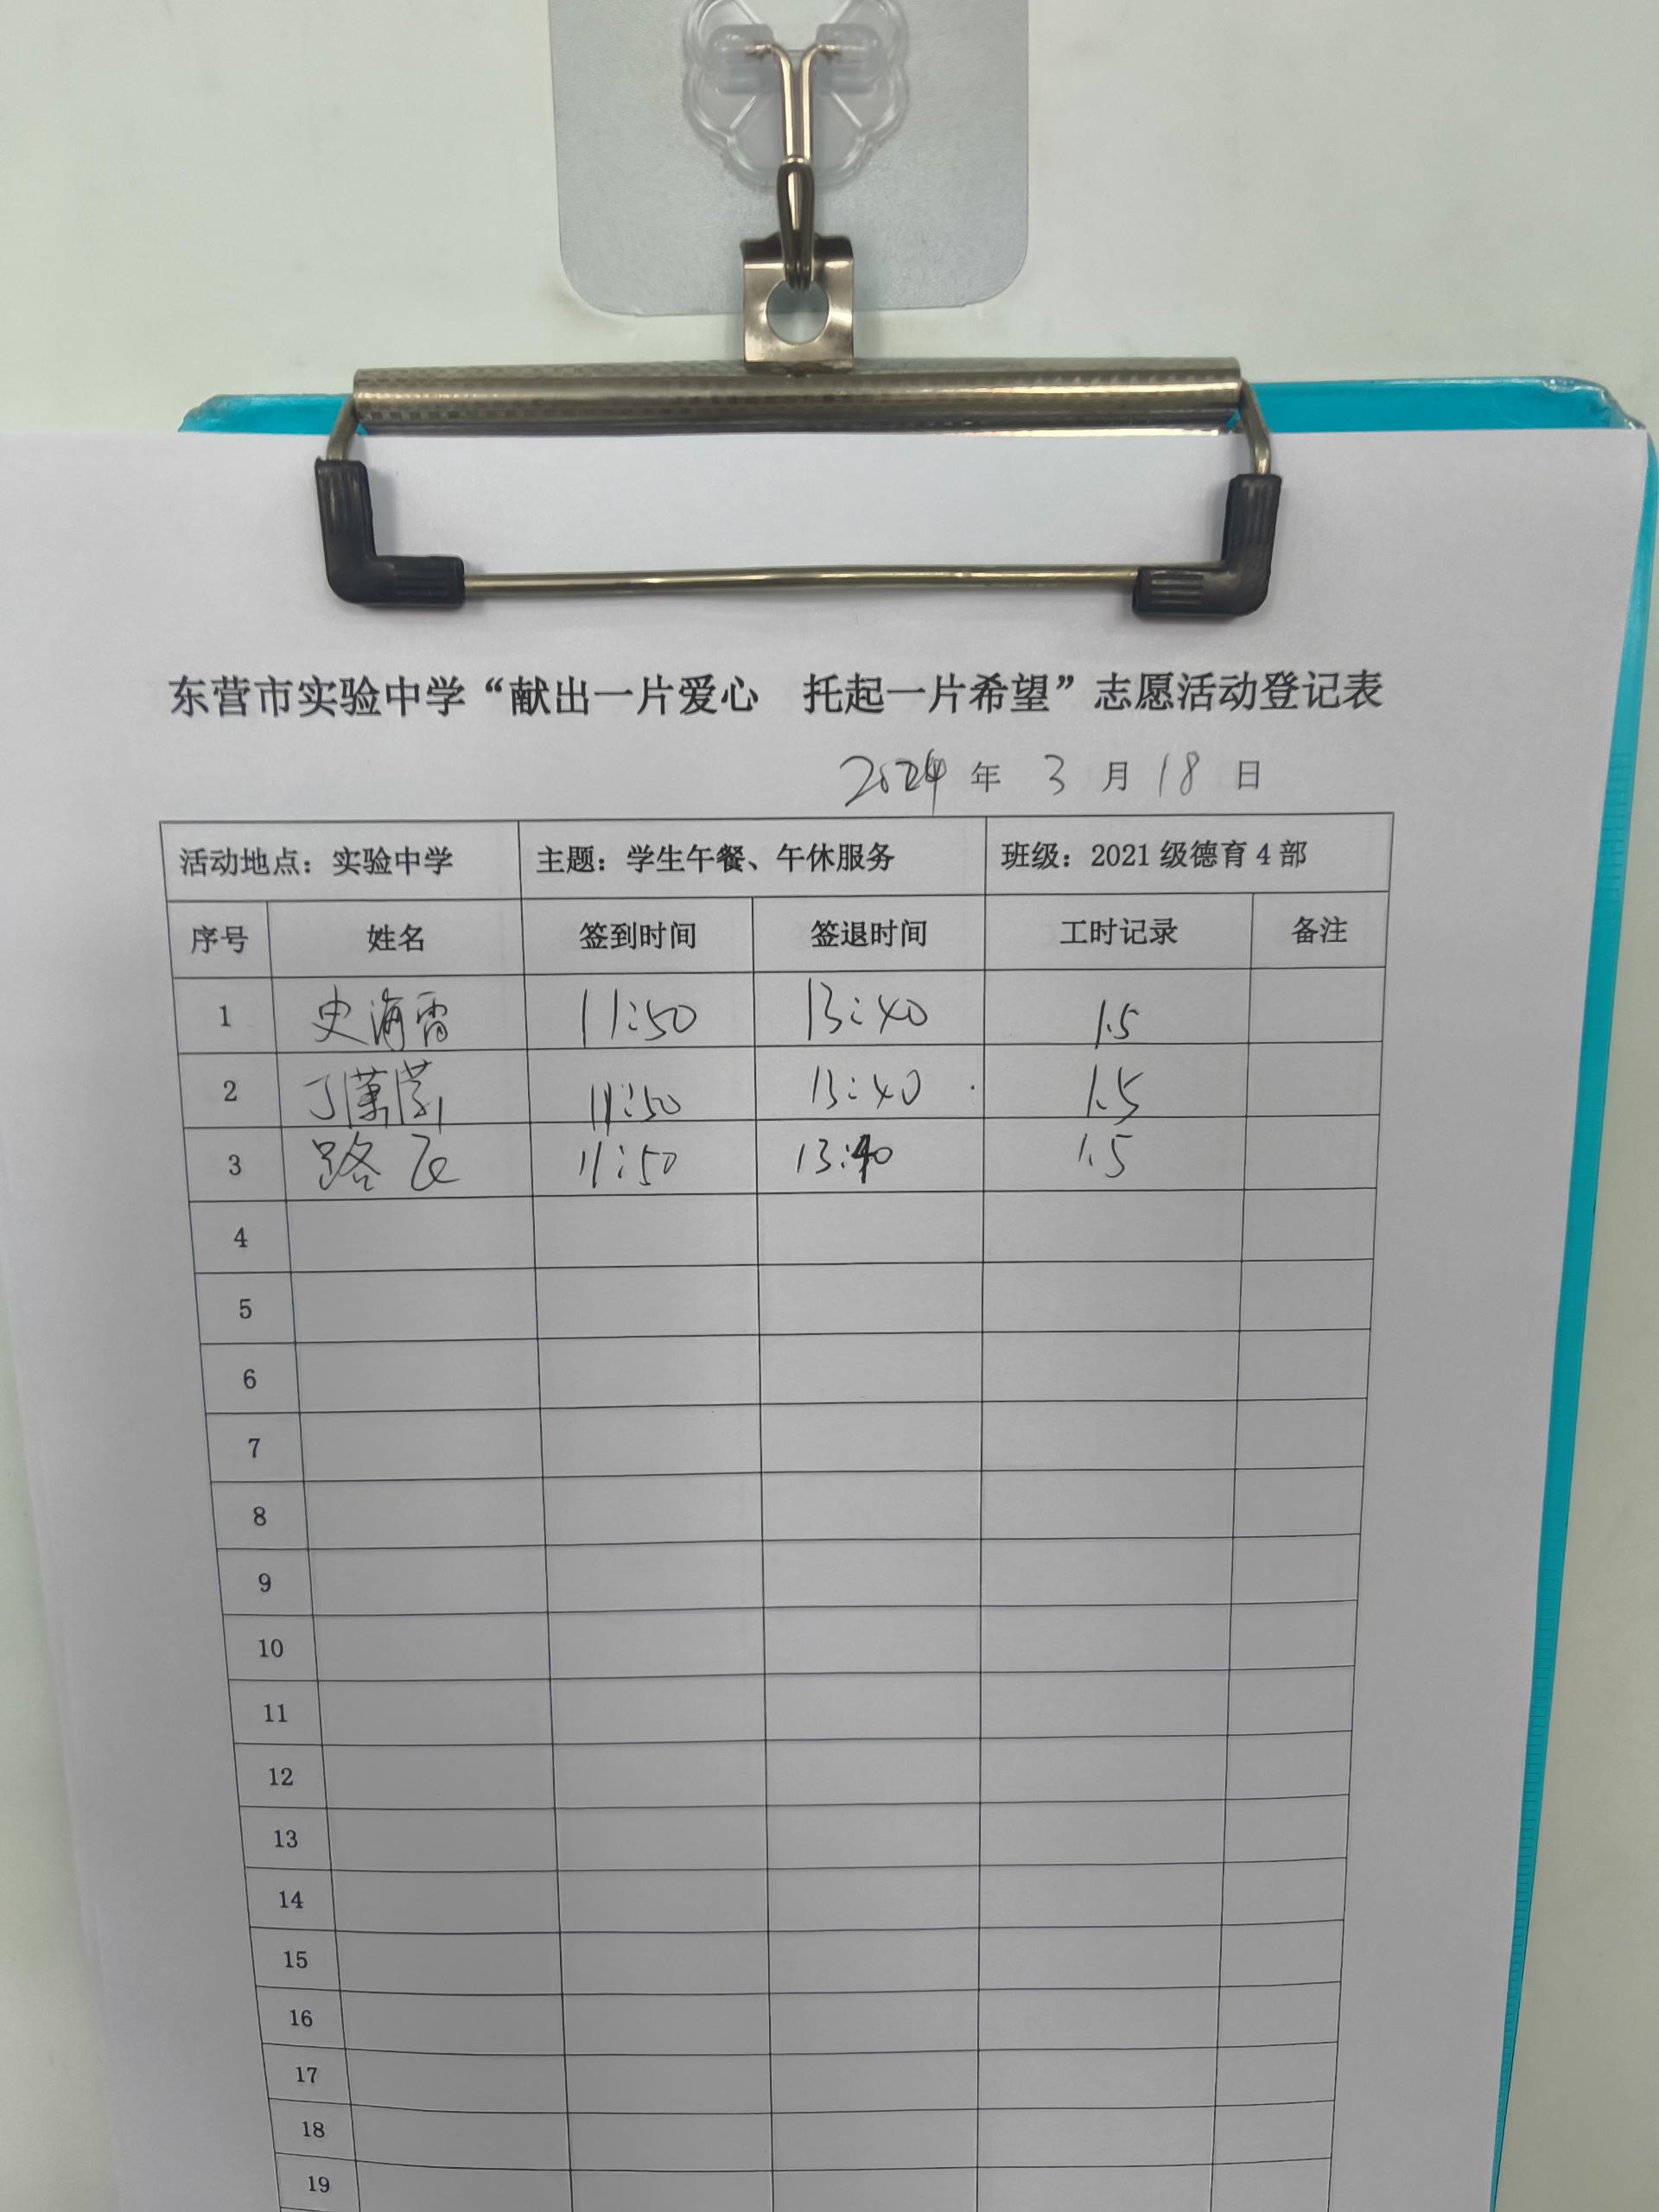 东营市实验中学“献出一片爱心　托起一片希望”志愿活动登记表
2024 年 3 月 18 日
活动地点：实验中学 主题：学生午餐、午休服务 班级：2021 级德育 4 部
序号 姓名 签到时间 签退时间 工时记录 备注
1 史海霄 11:50 13:40 1.5
2 丁 11:50 13:40 1.5
3 路 11:50 13:40 1.5
4
5
6
7
8
9
10
11
12
13
14
15
16
17
18
19